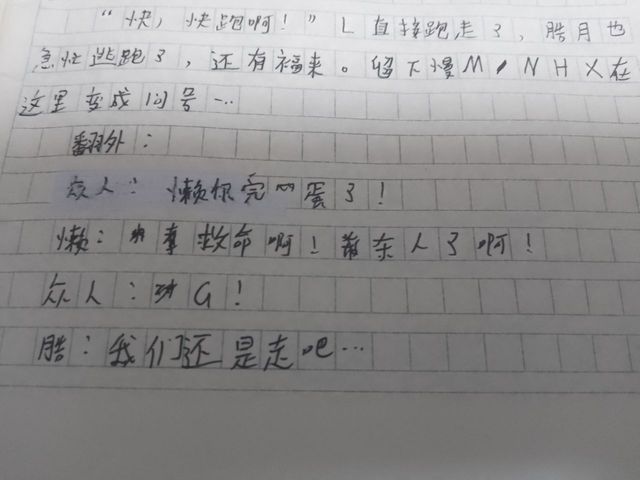 “快，快跑啊！”L直接跑走了，皓月也
急忙逃跑了，还有福来。留下慢M、NHX在
这里变成问号…
翻外：
众人：懒你完蛋了！
懒：救命啊！杀人了啊！
众人：G！
皓：我们还是走吧…